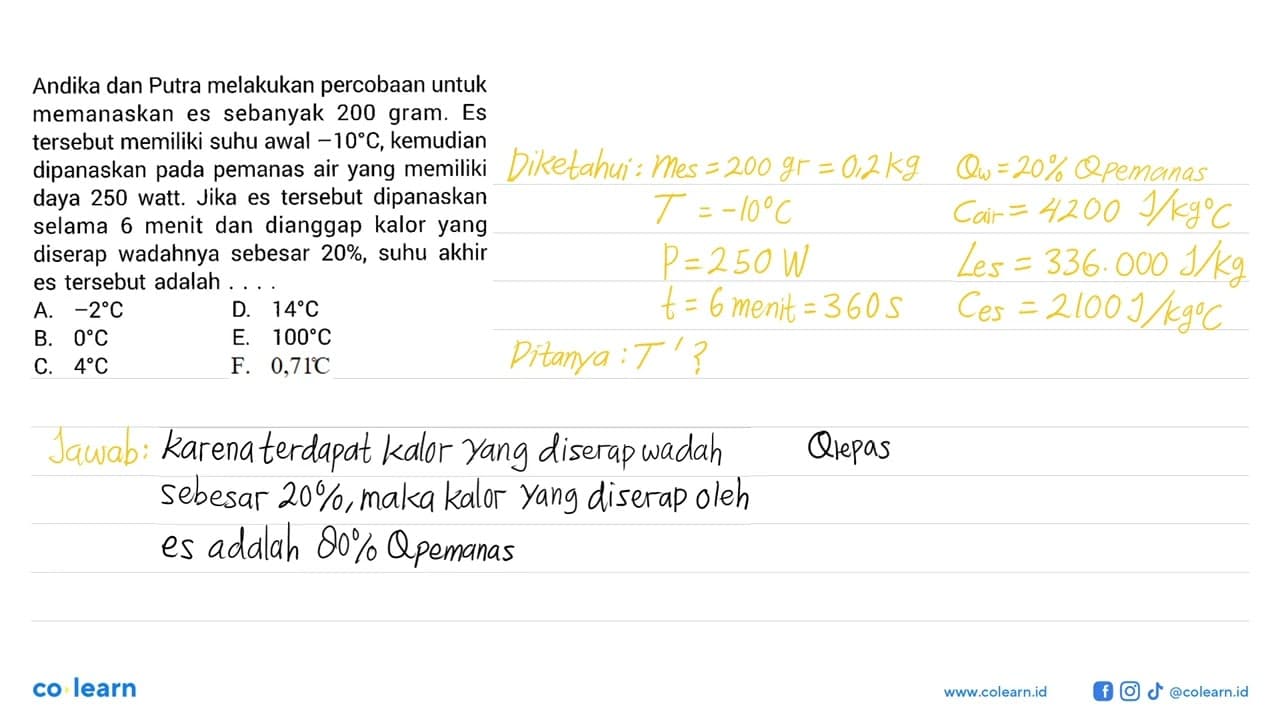 Andika dan Putra melakukan percobaan untuk
memanaskan es sebanyak 200 gram. Es
tersebut memiliki suhu awal −10°C, kemudian
dipanaskan pada pemanas air yang memiliki
daya 250 watt. Jika es tersebut dipanaskan
selama 6 menit dan dianggap kalor yang
diserap wadahnya sebesar 20%, suhu akhir
es tersebut adalah . . . .
A. −2°C D. 14°C
B. 0°C E. 100°C
C. 4°C F. 0,71℃
Diketahui: mes = 200 gr = 0,2 kg Qw = 20% Qpemanas
T = -10°C Cair = 4200 J/kg°C
P = 250 W Les = 336.000 J/kg
t = 6 menit = 360 s Ces = 2100 J/kg°C
Ditanya : T' ?
Jawab: karena terdapat kalor yang diserap wadah Qlepas
sebesar 20%, maka kalor yang diserap oleh
es adalah 80% Qpemanas
co learn www.colearn.id @colearn.id